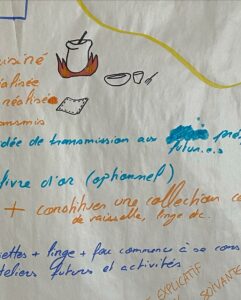 uisiné
éalisée
réalisée
ansmis
dée de transmission aux
futur.e.s
livre d'or (optionnel)
+ constituer une collection
de vaisselle, linge etc.
ettes + linge +
ateliers futurs et activités
EXPLICATIF
SUIVANTES